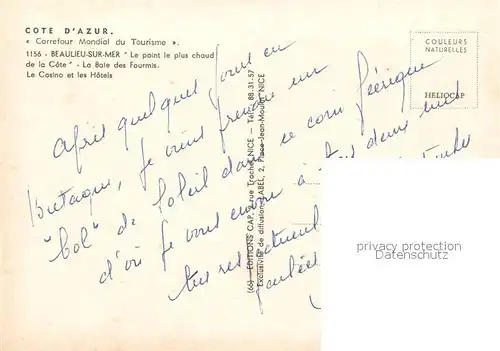 COTE D'AZUR.
« Carrefour Mondial du Tourisme ».
1156 - BEAULIEU-SUR-MER " Le point le plus chaud
de la Côte " - La Baie des Fourmis.
Le Casino et les Hôtels
COULEURS
NATURELLES
HELIOCAP
Après quelques jours en
Bretagne, je viens prendre un
"bol" de Soleil dans ce coin féérique
d'où je vous envoie à tous deux mes
très respectueuses
(66) - EDITIONS CAP, rue Trachel, NICE - Tél. 88.31.57
Exclusivité de diffusion LABEL, 2, Place Jean-Moulin, NICE
privacy protection
Datenschutz